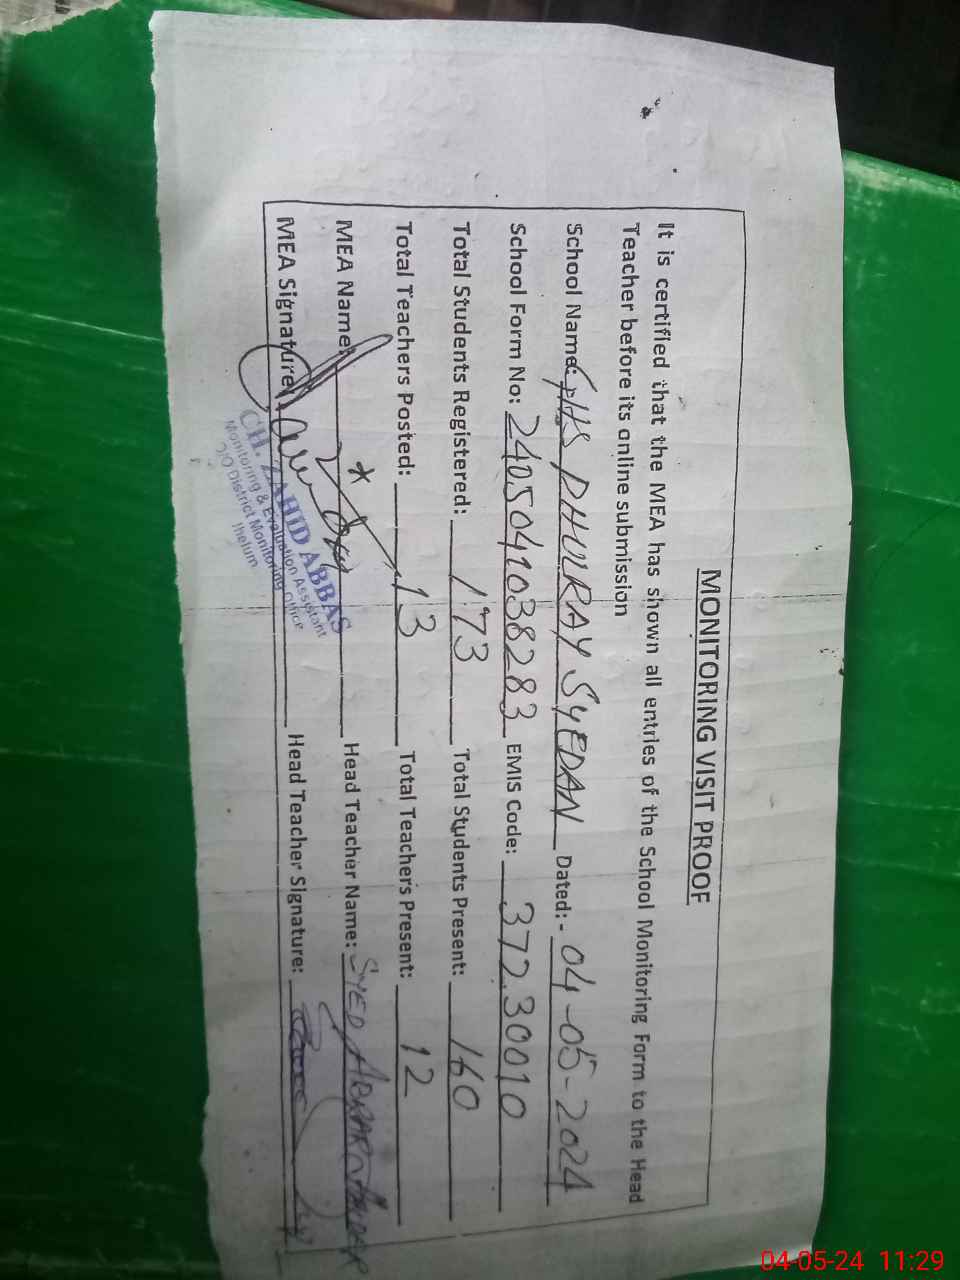 MONITORING VISIT PROOF
It is certified that the MEA has shown all entries of the School Monitoring Form to the Head
Teacher before its online submission
School Name: GHS DHULRAY SYEDAN Dated:- 04-05-2024
School Form No: 2405041038283 EMIS Code: 37230010
Total Students Registered: 173 Total Students Present: 160
Total Teachers Posted: 13 Total Teachers Present: 12
MEA Name: Head Teacher Name: SYED ABRAR HAIDER
MEA Signature: Head Teacher Signature:
CH. ZAHID ABBAS
Monitoring & Evaluation Assistant
O/O District Monitoring Office
Jhelum
04-05-24 11:29